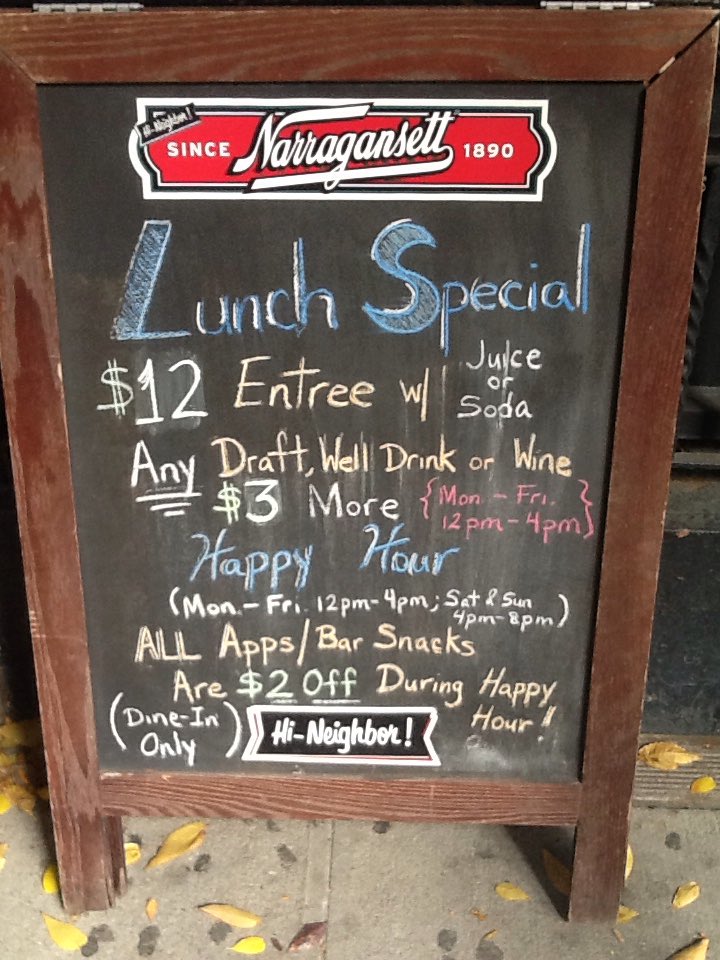 Hi-Neighbor!
SINCE Narragansett 1890
Lunch Special
$12 Entree w/ Juice or Soda
Any Draft, Well Drink or Wine
$3 More {Mon - Fri. 12pm - 4pm}
Happy Hour
(Mon. - Fri. 12pm - 4pm; Sat & Sun 4pm - 8pm)
ALL Apps/Bar Snacks
Are $2 Off During Happy Hour!
(Dine-In Only)
Hi-Neighbor!